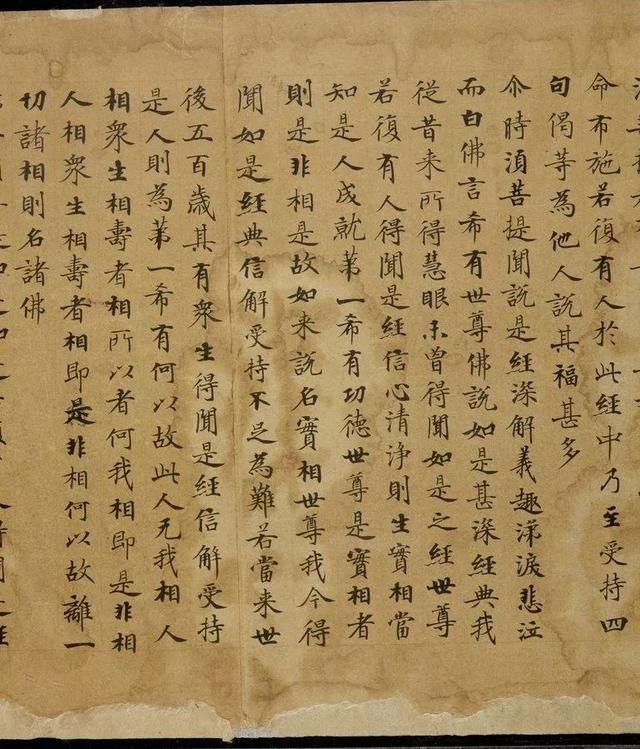 命布施若復有人於此經中乃至受持四
句偈等為他人說其福甚多
尒時湏菩提聞說是經深解義趣涕淚悲泣
而白佛言希有世尊佛說如是甚深經典我
從昔来所得慧眼未曾得聞如是之經世尊
若復有人得聞是經信心清淨則生實相當
知是人成就第一希有功德世尊是實相者
則是非相是故如来說名實相世尊我今得
聞如是經典信解受持不足為難若當来世
後五百歲其有衆生得聞是經信解受持
是人則為第一希有何以故此人无我相人
相衆生相壽者相所以者何我相即是非相
人相衆生相壽者相即是非相何以故離一
切諸相則名諸佛